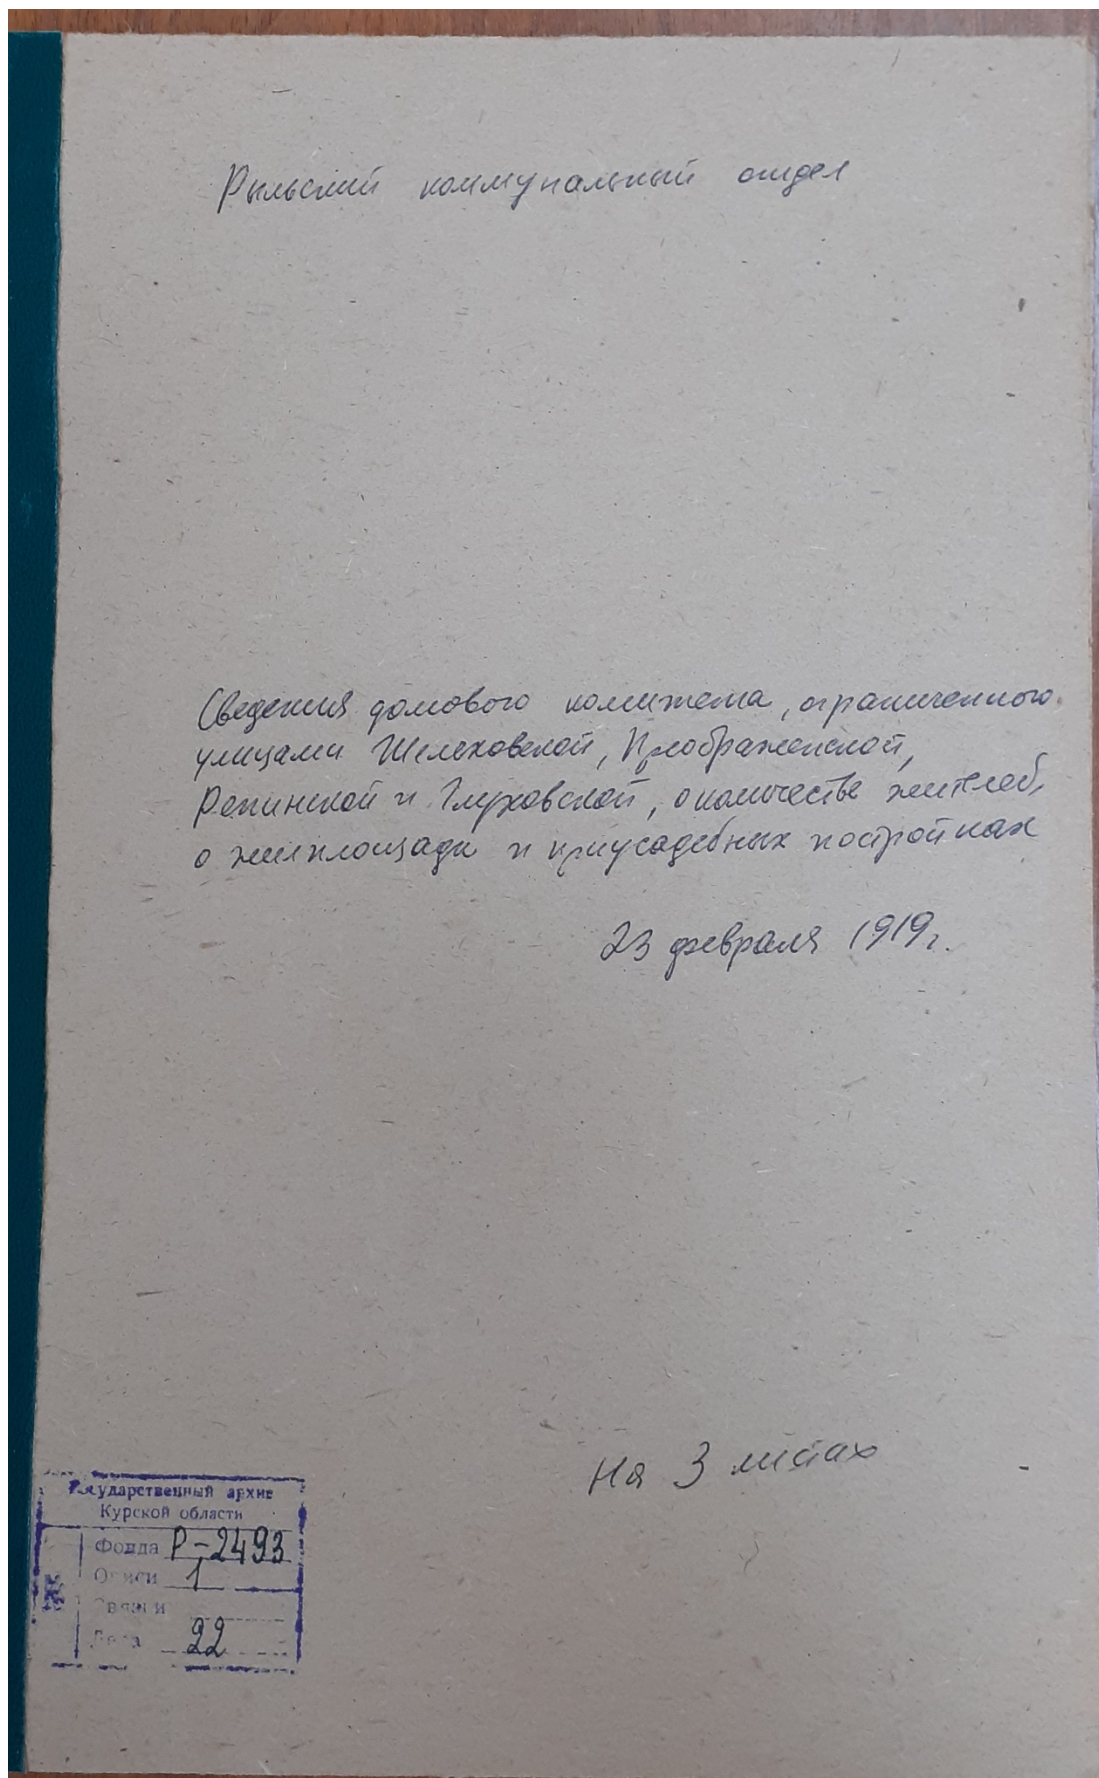 Рыльский коммунальный отдел
Сведения домового комитета, ограниченного
улицами Шелеховской, Преображенской,
Репинской и Глуховской, о количестве жителей,
о жилплощади и приусадебных постройках
23 февраля 1919 г.
На 3 листах
Государственный архив
Курской области
Фонда Р-2493
Описи 1
Связки
Дела 22